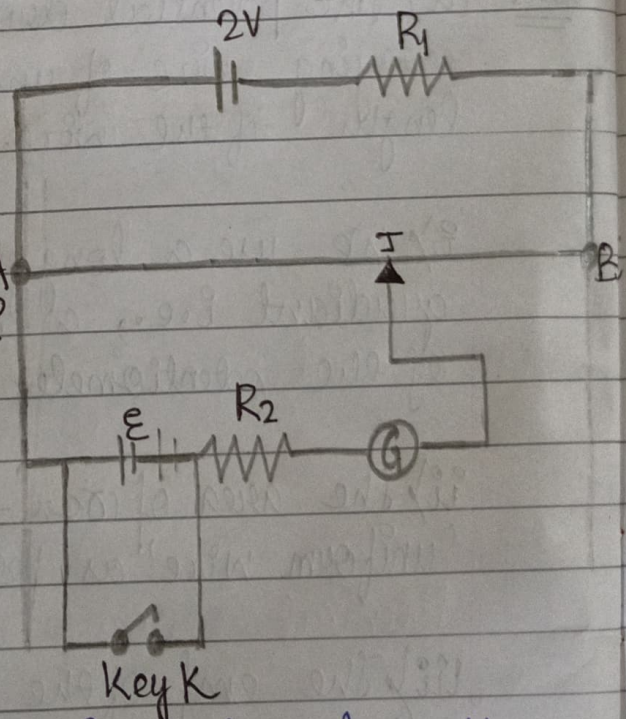 2V
R1
J
A
B
ε
R2
G
Key K